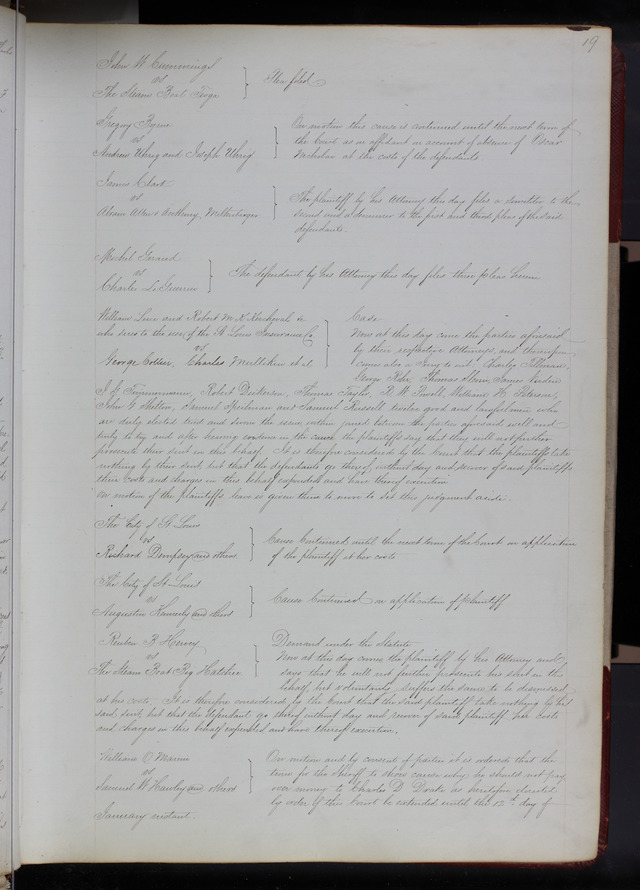 19
John W Cummings
vs
The Steam Boat Tioga
Plea filed
Gregory Byrne
vs
Andrew Uhrig and Joseph Uhrig
On motion this cause is continued until the next term of
the Court on an affidavit on account of absence of Oscar
at the costs of the defendants
James Clark
vs
Abram Allen & Anthony
The plaintiff by his Attorney this day files a similiter to the
second and a demurrer to the first and third pleas of the said
defendants
Michel Giraud
vs
Charles
The defendant by his Attorney this day files three pleas herein
William Luce and Robert M K Kerchival &c
who sues to the use of the St Louis Insurance Co
vs
George Collier, Charles Mullikin et al
Case
Now at this day come the parties aforesaid
by their respective Attorneys, and thereupon
comes also a Jury to wit Charles Tillman,
George Thomas James
J G Robert Dickerson, Thomas Taylor, R W Powell, William H Peterson,
John G Shelton, Samuel Spielman and Samuel Russell twelve good and lawful men who
are duly elected tried and sworn the issue within joined between the parties aforesaid well and
truly to try and after hearing evidence in the cause the plaintiffs say that they will not further
prosecute their suit in this behalf. It is therefore considered by the Court that the plaintiffs take
nothing by their suit, but that the defendants go thereof without day and recover of said plaintiffs
their costs and charges in this behalf expended and have thereof execution.
On motion of the plaintiffs leave is given them to move to set this judgment aside.
The City of St Louis
vs
Richard Dempsey and others
Cause Continued until the next term of the Court on application
of the plaintiff at her costs
The City of St Louis
vs
Augustin Kennerly and others
Cause Continued on application of plaintiff
Reuben B Hervey
vs
The Steam Boat Big Hatchee
Demand under the Statute
Now at this day comes the plaintiff by his Attorney and
says that he will not further prosecute his suit in this
behalf but voluntarily suffers the same to be dismissed
at his costs. It is therefore considered by the Court that the said plaintiff take nothing by his
said suit, but that the defendant go thereof without day and recover of said plaintiff her costs
and charges in this behalf expended and have thereof execution.
William O
vs
Samuel W Hawley and others
On motion and by consent of parties it is ordered that the
time for the Sheriff to show cause why he should not pay
over money to Charles D Drake as heretofore directed
by order of this Court be extended until the 12th day of
January instant.